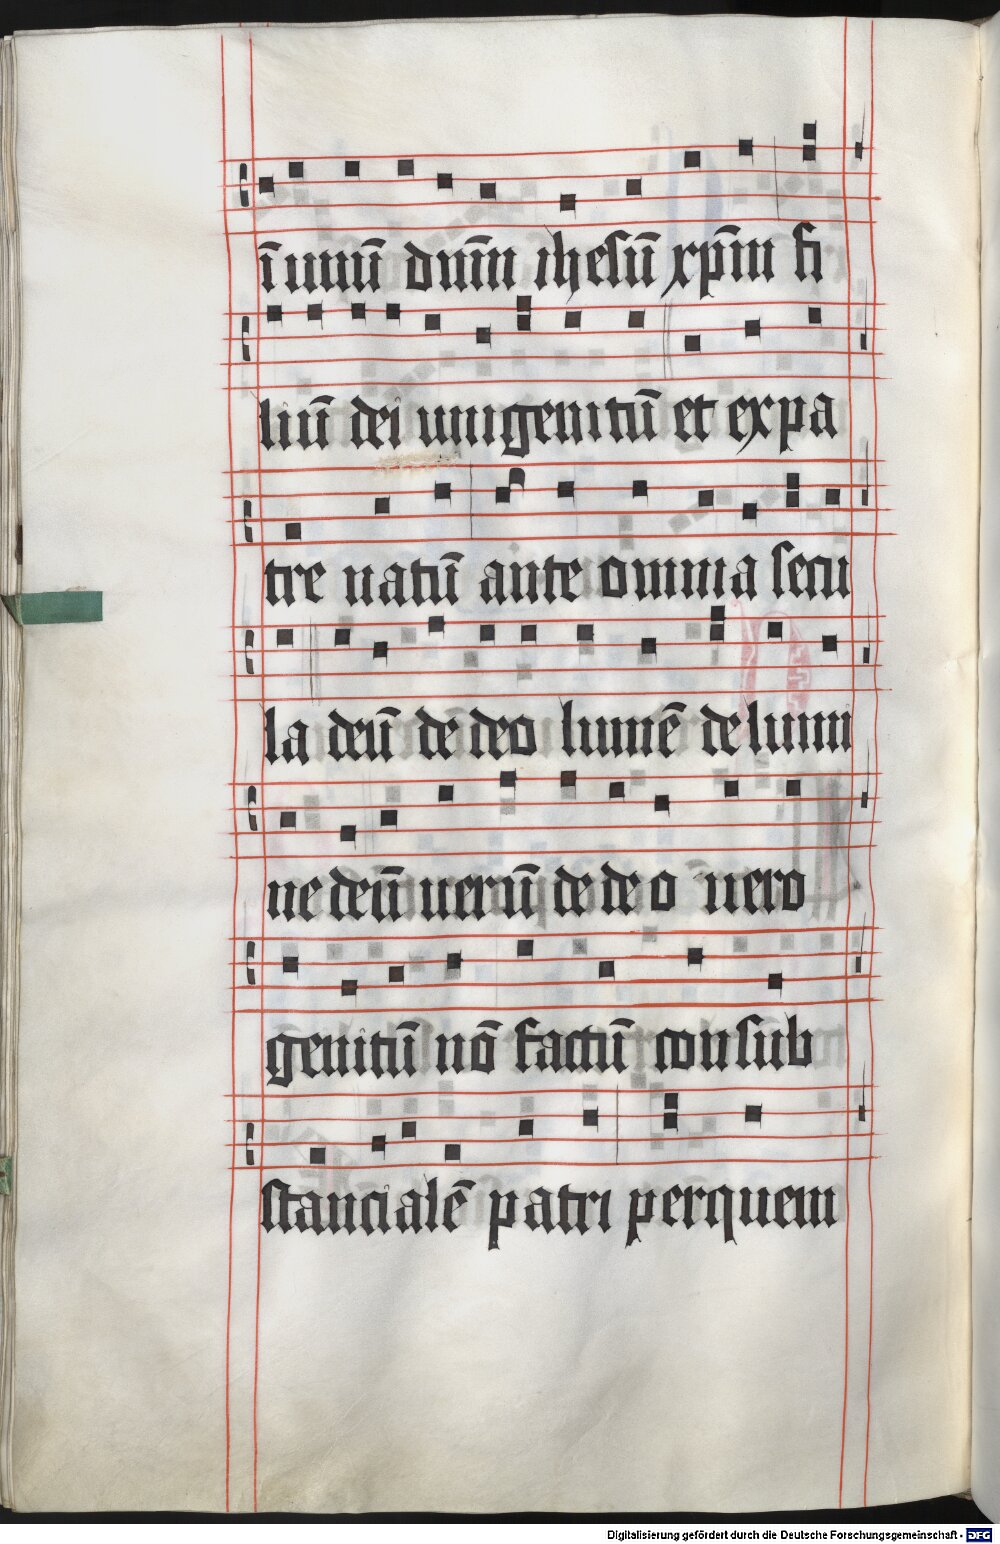 ī unū dnīm ihesū xp̄m fi
liū dei unigenitū et ex pa
tre natū ante omnia secu
la deū de deo lumē de lumi
ne deū uerū de de o uero
genitū nō factū con sub
stancialē patri per quem
Digitalisierung gefördert durch die Deutsche Forschungsgemeinschaft - DFG